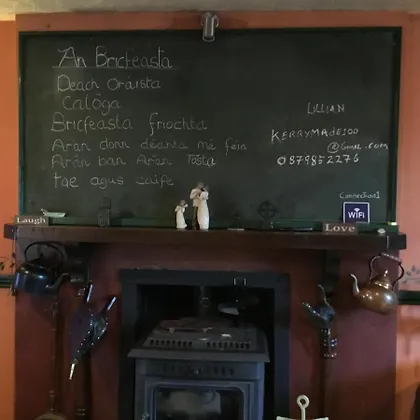 An Bricfeásta
Deach Oráista
Calóga
Bricfeasta friochta
Arán donn déanta mé féin
Arán ban Arán Tósta
Tae agus caife
LILLIAN
KERRYMADE100
@Gmail.com
0879852276
Connection1
WiFi
Laugh
Love